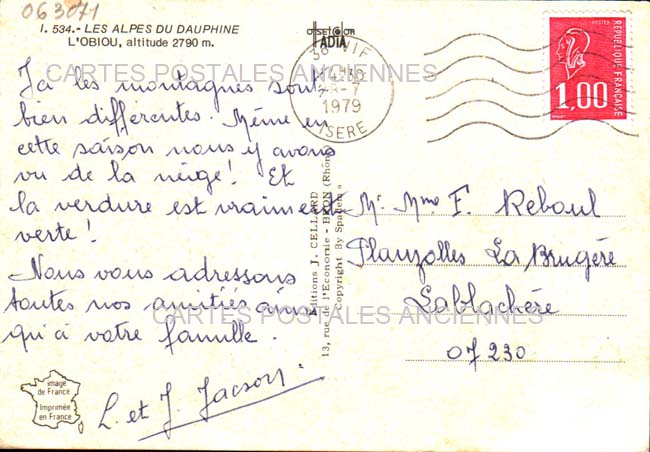 063071
I. 534.- LES ALPES DU DAUPHINE
L'OBIOU, altitude 2790 m.
OFFSETCOLOR
IADIA
38 VIF
28-7
1979
ISERE
POSTES
REPUBLIQUE FRANÇAISE
1,00
CARTES POSTALES ANCIENNES
Ici les montagnes sont
bien différentes. Même en
cette saison nous y avons
vu de la neige! Et
la verdure est vraiment
verte!
Nous vous adressons
toutes nos amitiés ains
qu'à votre famille.
L. et J. Jacson.
Editions J. CELLARD
13, rue de l'Economie - BRON (Rhône)
Copyright By Spadem
Mr. Mme F. Reboul
Planzolles La Brugère
Lablachère
07 230
CARTES POSTALES ANCIENNES
Image
de France
Imprimée
en France